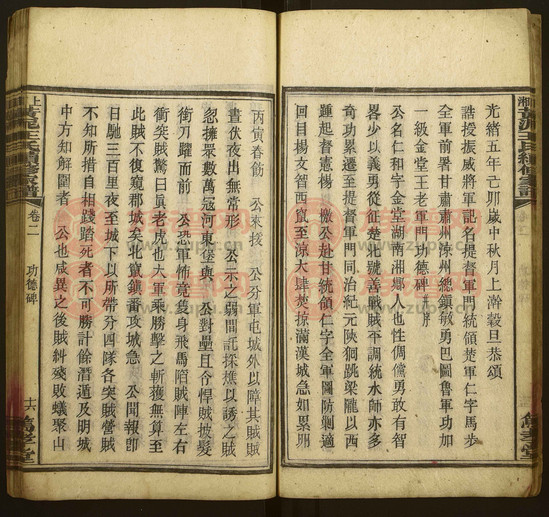 光緒五年己卯歲中秋月上澣穀旦恭頌
誥授振威將軍記名提督軍門統領楚軍仁字馬步
全軍前署甘肅肅州涼州總鎮敏勇巴圖魯軍功加
一級金堂王老軍門功德碑并序
公名仁和字金堂湖南湘鄉人也性倜儻勇敢有智
畧少以義勇從征楚北號善戰賊平調統水師亦多
奇功以次陞至提督軍門同治紀元陝狪跳梁隴以西
回目馬文智西竄至涼大肆焚掠滿漢城急如累卵
踵起督憲楊 檄公赴甘統領仁字全軍圖防剿適
丙寅春飭 公來援 公分軍屯城外以障其賊賊
晝伏夜出無常形 公示之弱間託採樵以誘之賊
忽擁眾數萬寇河東堡與 公對壘且令悍賊披髮
衔刀躍而前 公恐軍怖竟隻身飛馬陌賊陣左右
衝突賊驚曰真老虎也大軍乘勝擊之斬獲無算至
此賊不復窺郡城矣北竄鎮番攻城急 公聞報卽
日馳三百里夜至城下以所帶分四隊各突賊營賊
不知所措自相踐踏死者不可勝計餘潛遁及明城
中方知解圍者 公也咸異之後賊糾殘敗蟻聚山
上湘黃泥王氏續修家譜
卷二
功德碑
十六
篤孝堂